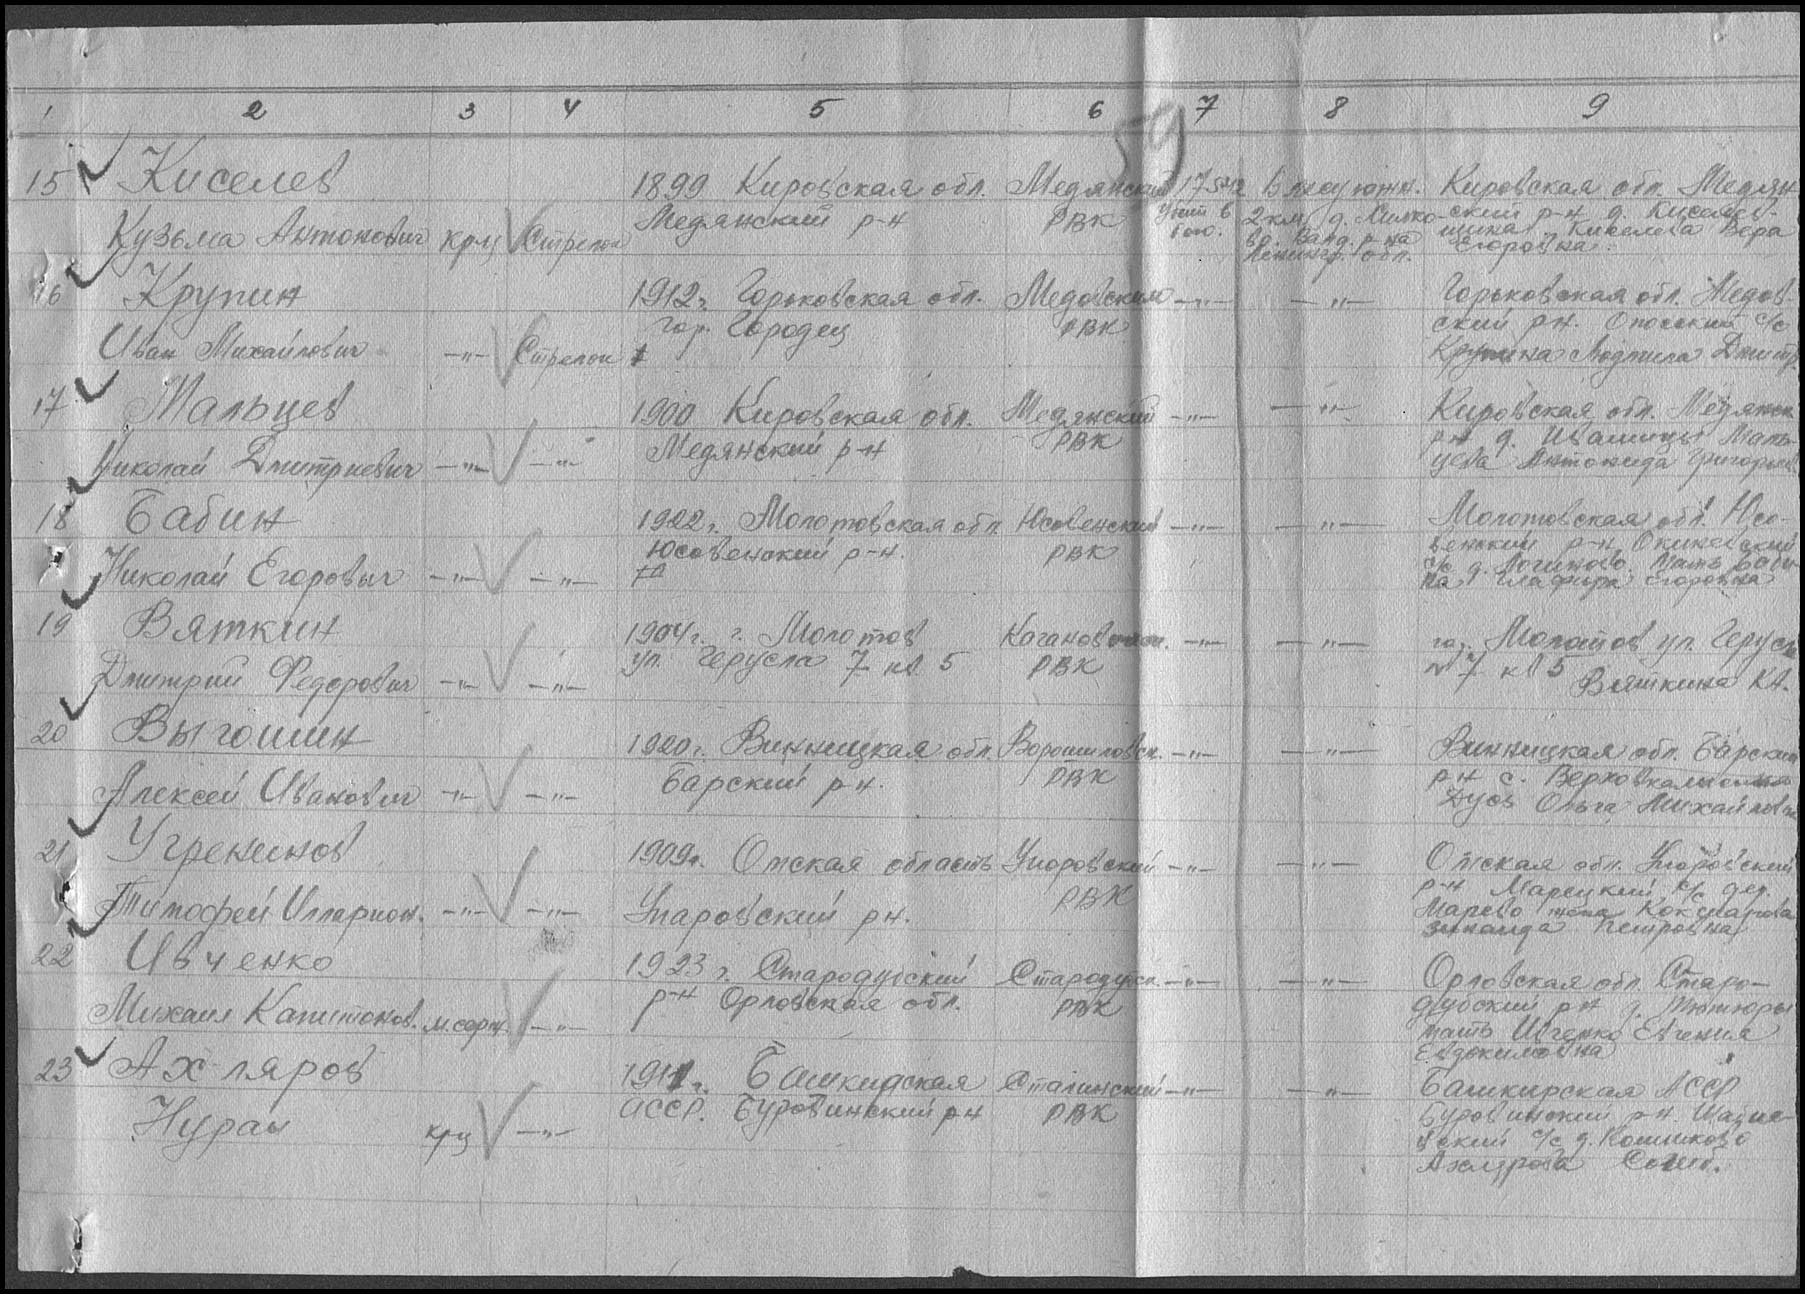 1 2 3 4 5 6 7 8 9
59
15 Киселев 1899 Кировская обл. Медянский 17.5.42 В лесу южн. Кировская обл. Медян
Кузьма Антонович кр-ц Стрелок Медянский р-н РВК Убит в бою. 2 км д.
ский р-н д. Киселев-
щина. Киселева Вера
Ленингр. обл. Егоровна.
16 Крупин 1912 г. Горьковская обл. Медовский —"— —"— Горьковская обл. Медов-
Иван Михайлович —"— Стрелок гор. Городец РВК ский р-н. с/с
Крупина Людмила Дмитр.
17 Мальцев 1900 Кировская обл. Медянский —"— —"— Кировская обл. Медянск
Николай Дмитриевич —"— —"— Медянский р-н РВК р-н д. Ивашицы Маль-
цева Антонида Григорьев
18 Бабин 1922 г. Молотовская обл. Юсовенский —"— —"— Молотовская обл. Юсо-
Николай Егорович —"— —"— Юсовенский р-н. РВК венский р-н
с/с д. Логиново. Мать Баби-
на Глафира Егоровна
19 Вяткин 1904 г. г. Молотов Каганович. —"— —"— гор. Молотов ул. Герусл
Дмитрий Федорович —"— —"— ул. Герусла 7 кв. 5 РВК № 7 кв 5
Вяткина К.А.
20 Выгошин 1920 г. Винницкая обл. Ворошиловск. —"— —"— Винницкая обл. Барский
Алексей Иванович —"— —"— Барский р-н. РВК р-н с. Верховка
Дусь Ольга Михайловна
21 Угренинов 1909 г. Омская область Упоровский —"— —"— Омская обл. Упоровский
Тимофей Илларион. —"— —"— Упаровский р-н. РВК р-н с/с дер.
Марево жена Кокшарова
Зинаида Петровна
22 Ивченко 1923 г. Стародубский Стародубск. —"— —"— Орловская обл. Старо-
Михаил Капитонов. м.серж. —"— р-н Орловская обл. РВК дубский р-н д. Тютюры
мать Ивченко Евгения
Евдокимовна
23 Ахляров 1911 г. Башкирская Сталинский —"— —"— Башкирская АССР
Нурай кр-ц —"— АССР. Буровинский р-н РВК Буровинский р-н.
с/с д. Кошиково